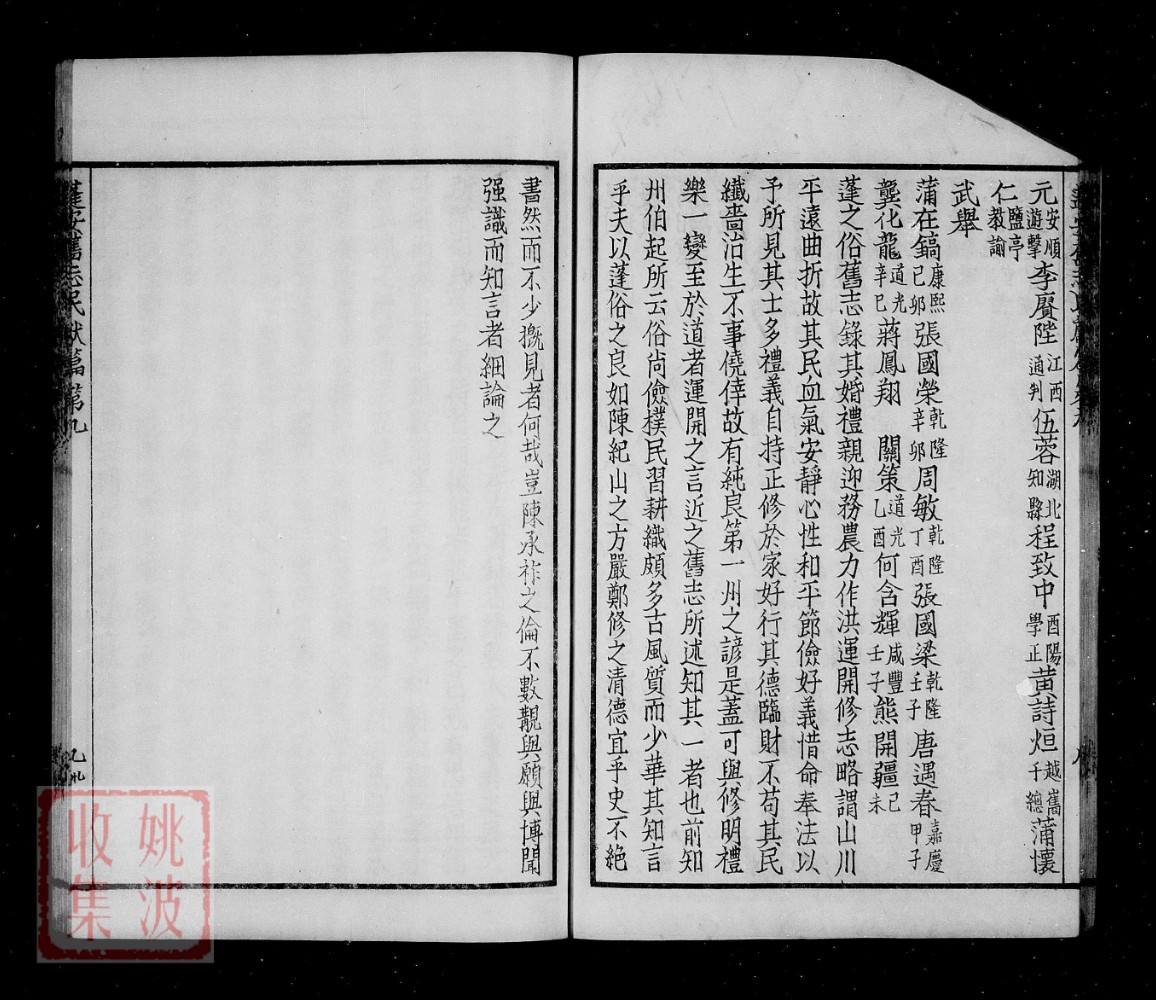 元安順遊擊李賡陛江西通判伍蓉湖北知縣程致中酉陽學正黄詩烜越嶲千總蒲懷
仁鹽亭教諭
武舉
蒲在鎬康熙己卯張國榮乾隆辛卯周敏乾隆丁酉張國梁乾隆壬子唐遇春嘉慶甲子
龔化龍道光辛巳蔣鳳翔 關策道光乙酉何含輝咸豐壬子熊開疆己未
蓬之俗舊志錄其婚禮親迎務農力作洪運開修志略謂山川
平遠曲折故其民血氣安靜心性和平節儉好義惜命奉法以
予所見其士多禮義自持正修於家好行其德臨財不苟其民
纖嗇治生不事僥倖故有純良第一州之諺是蓋可與修明禮
樂一變至於道者運開之言近之舊志所述知其一者也前知
州伯起所云俗尚儉樸民習耕織頗多古風質而少華其知言
乎夫以蓬俗之良如陳紀山之方嚴鄭修之清德宜乎史不絶
書然而不少概見者何哉豈陳承祚之倫不數覯與願與博聞
强識而知言者細論之
蓬安舊志民獻篇第九
姚波
收集